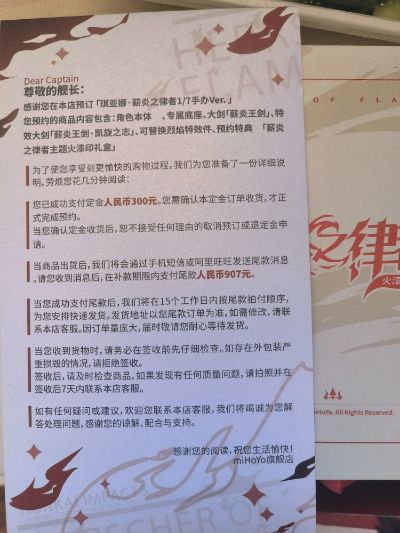 HERR
FLAM
Dear Captain
尊敬的舰长：
感谢您在本店预订「琪亚娜·薪炎之律者1/7手办Ver.」
您预约的商品内容包含:角色本体 、专属底座、大剑「薪炎王剑」、特
效大剑「薪炎王剑·凯旋之志」、可替换烈焰特效件、预约特典 「薪炎
之律者主题火漆印礼盒」
为了使您享受到更愉快的购物过程，我们为您准备了一份详细说
明，劳烦您花几分钟阅读：
您已成功支付定金人民币300元。您需确认本定金订单收货，才正
式完成预约。
当您确认定金收货后，恕不接受任何理由的取消预订或退定金申
请。
当商品出货后，我们将会通过手机短信或阿里旺旺发送尾款消息
。请您收到消息后，在补款期限内支付尾款人民币907元。
当您成功支付尾款后，我们将在15个工作日内按尾款拍付顺序，
为您安排快递发货。发货地址以您尾款订单为准，如需修改，请联
系本店客服。因订单量庞大，届时敬请您耐心等待发货。
当您收到货物时，请务必在签收前先仔细检查。如存在外包装严
重损毁的情况，请拒绝签收。
签收后，请及时检查商品，如果发现有任何质量问题，请拍照并在
签收后7天内联系本店客服。
如有任何疑问或建议，欢迎您联系本店客服，我们将竭诚为您解
答处理问题，感谢您的谅解、配合与支持。
感谢您的阅读，祝您生活愉快！
miHoYo旗舰店
HONKAI IMPACT
OF FLA
之律
火漆
miHoYo. All Rights Reserved.